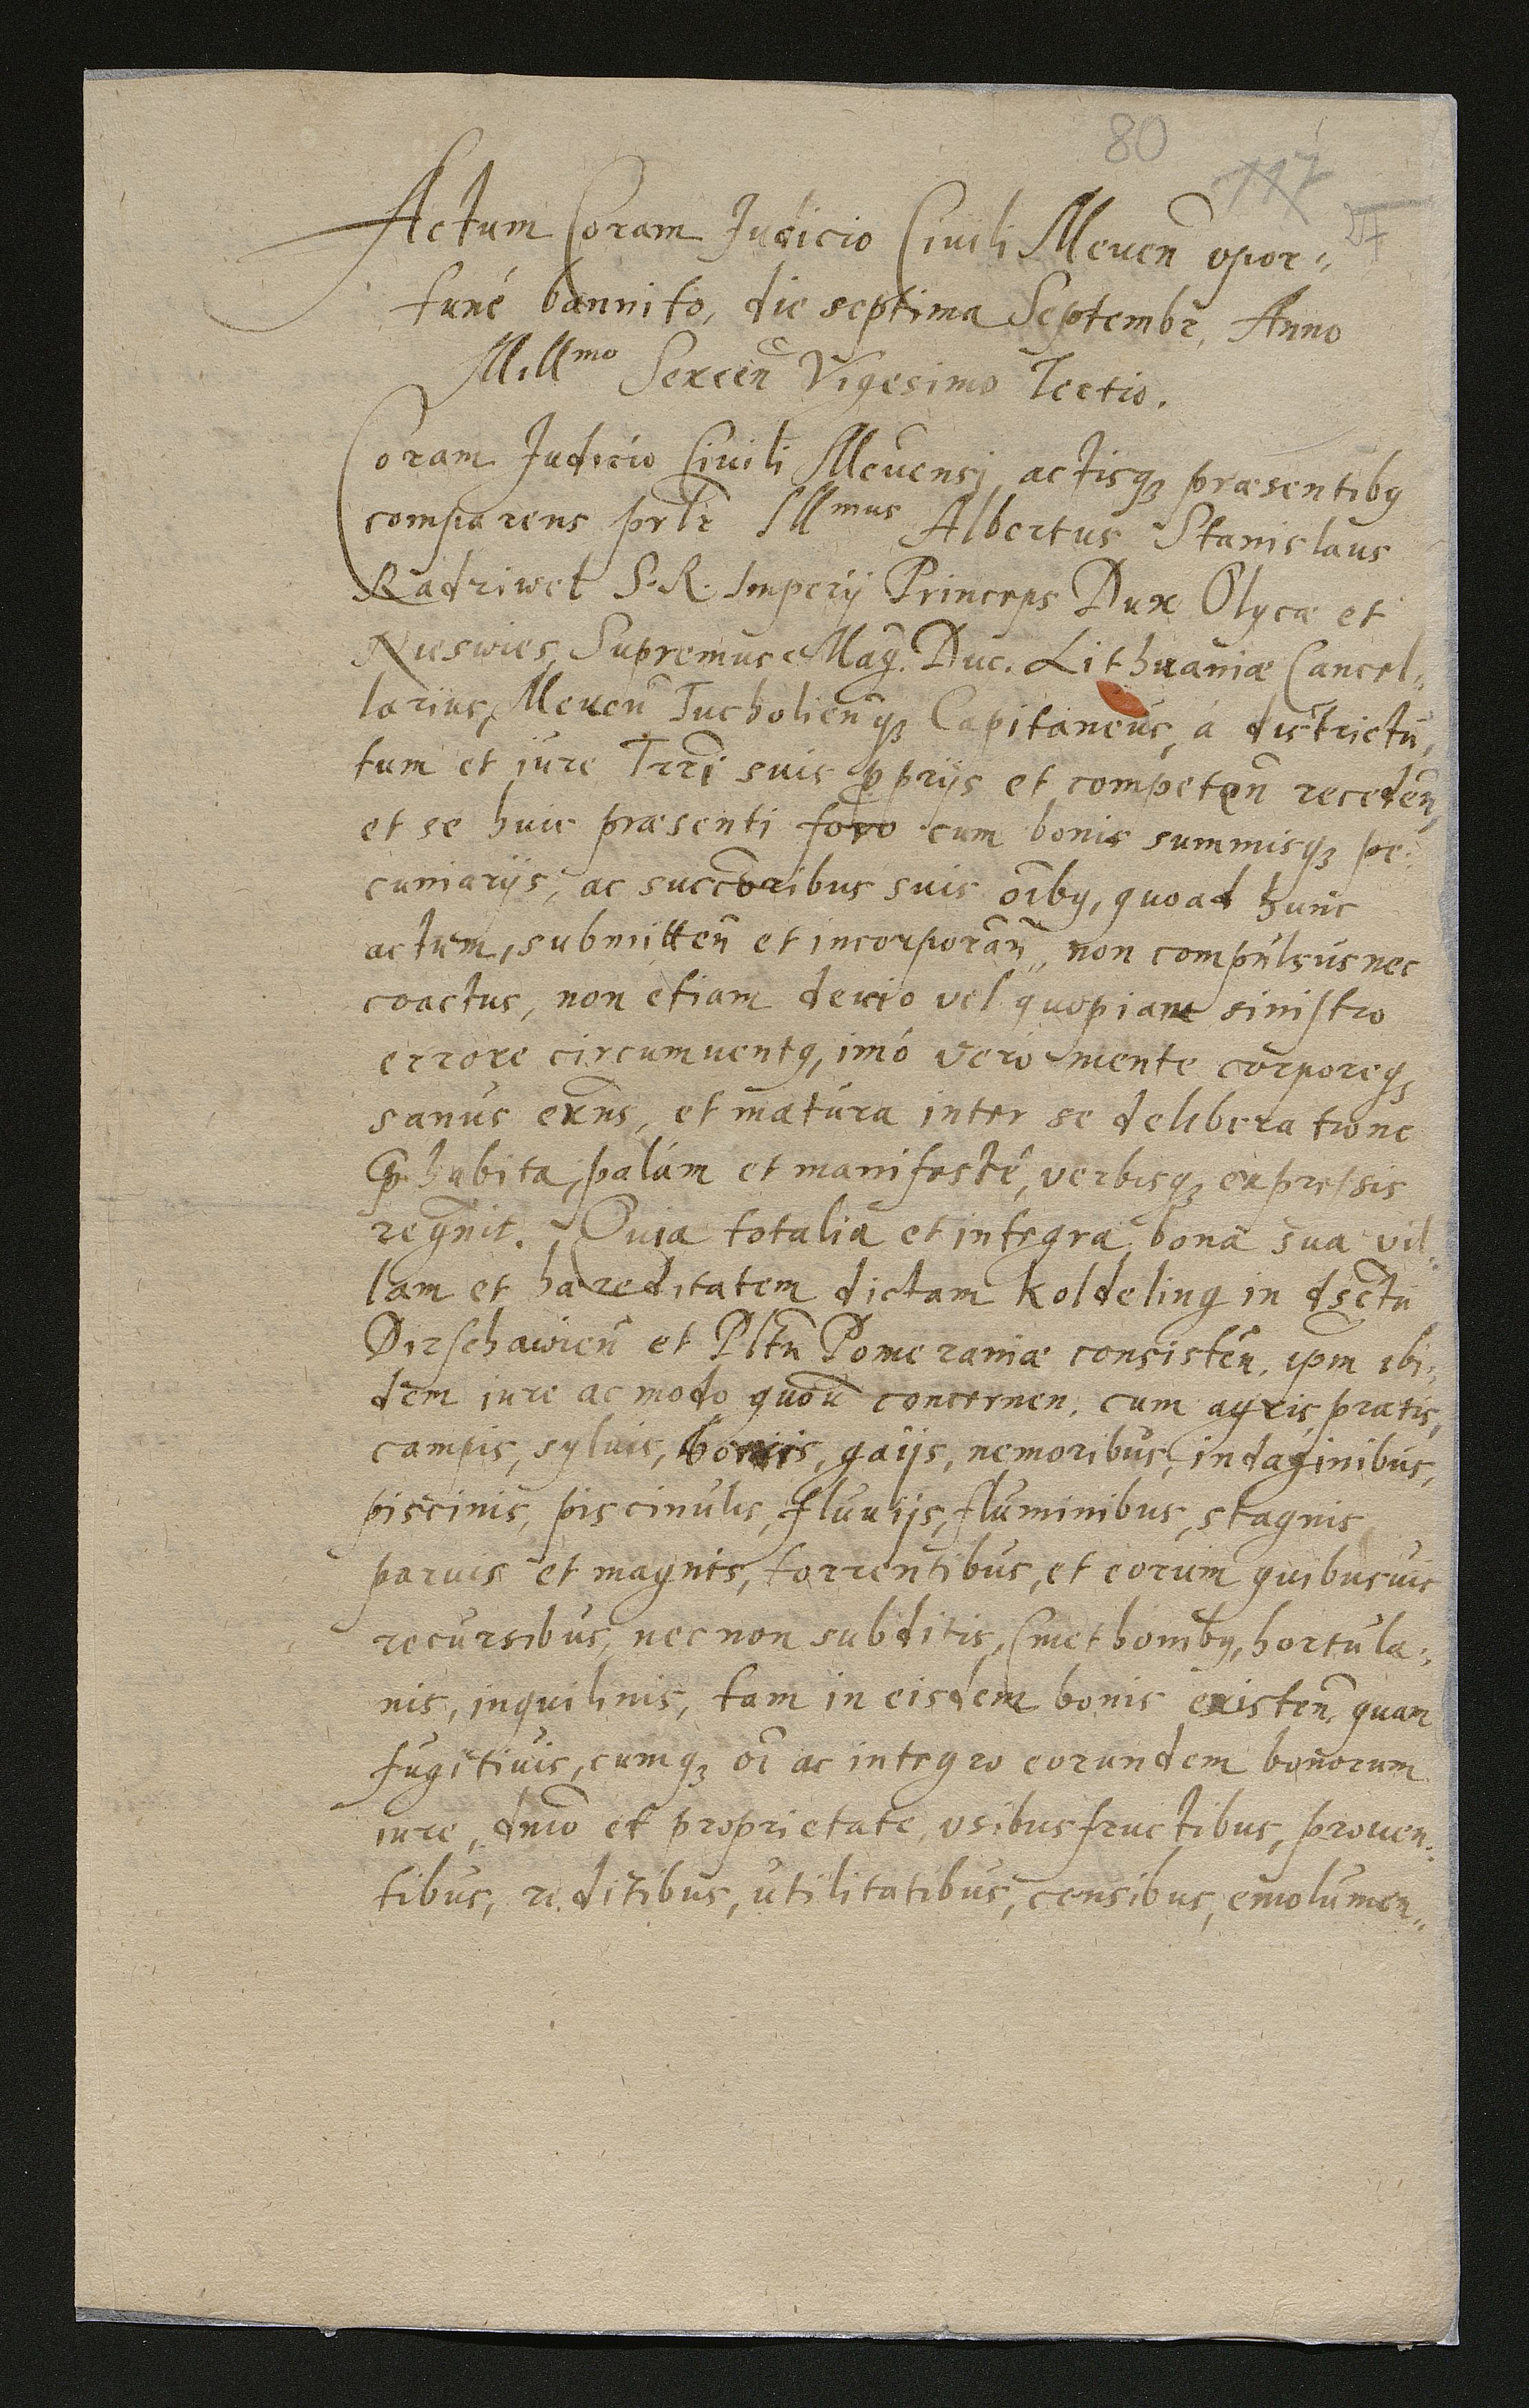 80
117
Actum Coram Judicio Ciuili Meueñ opor„
tuné bannito, die septima Septembr, Anno
Millmo Sexceñ Vigesimo Tertio.
Coram Judicio Ciuili Meuensi actisq₃ præsentibg
comparens prlr Illmus Albertus Stanislaus
Radziwel S. R. Imperij Princeps Dux Olycæ et
Nieswies, Supremus Mag. Duc. Lithuaniæ Cancel„
larius, Meueñ Tucholieñq₃ Capitaneus, á districtu,
tum et iure Trri suis ppriis et competeñ recedeñ,
et se huic præsenti foro cum bonis summisq₃ pe„
cuniarijs, ac succoribus suis oibg, quoad hunc
actum, submitteñ et incorporañ, non compulsus nec
coactus, non etiam deuio vel quopiam sinistro
errore circumuentg, imó vero mente corporeq₃
sanus exns, et matura inter se deliberatione
p̃habita, palám et manifesté, verbisq₃ expressis
regnit. Quia totalia et integra bona sua vil„
lam et hæreditatem dictam Koldeling in dsctu
Dirschawieñ et Pltu Pomeraniæ consisteñ, ipm ibi„
dem iure ac modo quouis concernen. cum agris, pratis,
campis, syluis, boris, gaijs, nemoribus, indaginibus,
piscinis, piscinulis, fluuijs, fluminibus, stagnis
paruis et magnis, torrentibus, et eorum quibusuis
recursibus, nec non subditis, Cmethonibg, hortula„
nis, inquilinis, tam in eisdem bonis existeñ quam
fugitiuis, cumq₃ oi ac integro eorundem bonorum
iure, dnio et proprietate, vsibusfructibus, prouen„
tibus, reditibus, utilitatibus, censibus, emolumen„